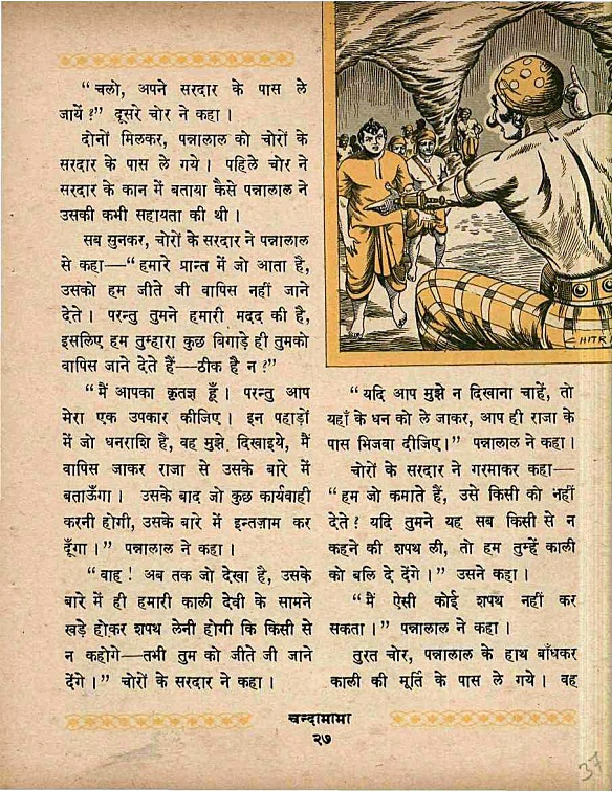 “चलो, अपने सरदार के पास ले
जायें?” दूसरे चोर ने कहा।
दोनों मिलकर, पन्नालाल को चोरों के
सरदार के पास ले गये। पहिले चोर ने
सरदार के कान में बताया कैसे पन्नालाल ने
उसकी कभी सहायता की थी।
सब सुनकर, चोरों के सरदार ने पन्नालाल
से कहा—“हमारे प्रान्त में जो आता है,
उसको हम जीते जी वापिस नहीं जाने
देते। परन्तु तुमने हमारी मदद की है,
इसलिए हम तुम्हारा कुछ बिगाड़े ही तुमको
वापिस जाने देते हैं—ठीक है न?”
“मैं आपका कृतज्ञ हूँ। परन्तु आप
मेरा एक उपकार कीजिए। इन पहाड़ों
में जो धनराशि है, वह मुझे दिखाइये, मैं
वापिस जाकर राजा से उसके बारे में
बताऊँगा। उसके बाद जो कुछ कार्यवाही
करनी होगी, उसके बारे में इन्तज़ाम कर
दूँगा।” पन्नालाल ने कहा।
“वाह! अब तक जो देखा है, उसके
बारे में ही हमारी काली देवी के सामने
खड़े होकर शपथ लेनी होगी कि किसी से
न कहोगे—तभी तुम को जीते जी जाने
देंगे।” चोरों के सरदार ने कहा।
CHITR
“यदि आप मुझे न दिखाना चाहें, तो
यहाँ के धन को ले जाकर, आप ही राजा के
पास भिजवा दीजिए।” पन्नालाल ने कहा।
चोरों के सरदार ने गरमाकर कहा—
“हम जो कमाते हैं, उसे किसी को नहीं
देते? यदि तुमने यह सब किसी से न
कहने की शपथ ली, तो हम तुम्हें काली
को बलि दे देंगे।” उसने कहा।
“मैं ऐसी कोई शपथ नहीं कर
सकता।” पन्नालाल ने कहा।
तुरत चोर, पन्नालाल के हाथ बाँधकर
काली की मूर्ति के पास ले गये। वह
चन्दामामा
२७
37